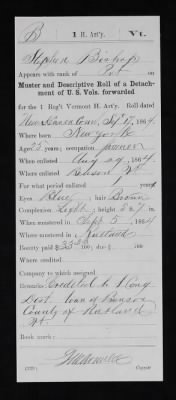 B | 1 H. Art'y. | Vt.
Stephen Bishop
Appears with rank of Pvt on
Muster and Descriptive Roll of a Detach-
ment of U. S. Vols. forwarded
for the 1 Reg't Vermont H. Art'y. Roll dated
New Haven Conn, Sept 17, 1864.
Where born New York
Age 25 years; occupation farmer
When enlisted Aug 29, 1864
Where enlisted Benson Vt
For what period enlisted 1 years
Eyes Blue; hair Brown
Complexion Light; height 5 ft. 7 in.
When mustered in Sept 5, 1864
Where mustered in Rutland
Bounty paid $33 33/100; due $ 100
Where credited
Company to which assigned
Remarks: Credited to 1 Cong
Dist. Town of Benson
County of Rutland
Vt.
Book mark:
(339) Copyist.